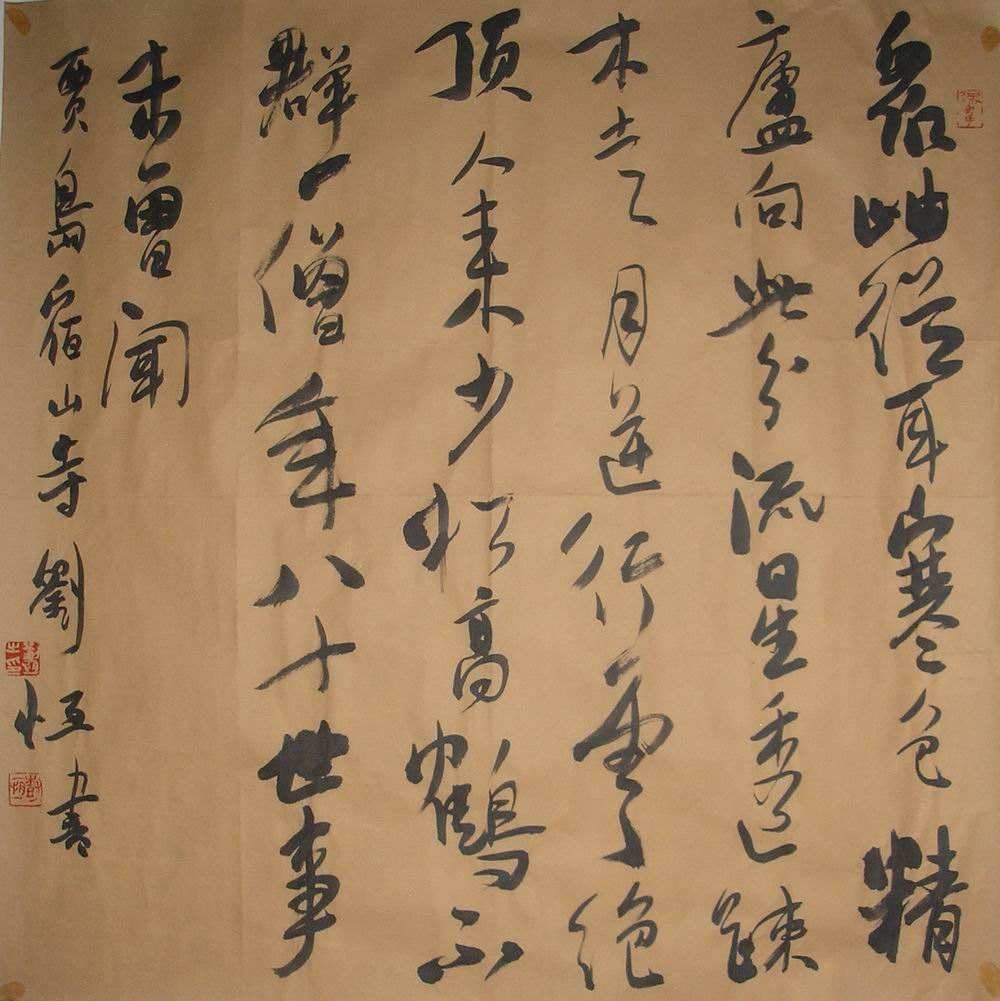 眾岫聳寒色精
廬向此分流星透踈
木走月逆行雲絕
頂人来少松高鶴不
群一僧年八十世事
未曾聞
賈島宿山寺劉恒書